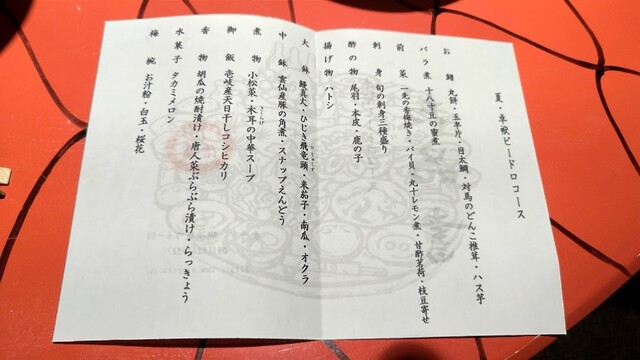 夏・卓袱ビードロコース
お鰭 丸餅・玉半片・目太鯛・対馬のどんこ椎茸・ハス芋
バラ煮 十八十豆の蜜煮
前菜 一先の香梅焼き・バイ貝・丸十レモン煮・甘酢茗荷・枝豆寄せ
刺身 旬の刺身三種盛り
酢の物 尾羽・本皮・鹿の子
揚げ物 ハトシ
大鉢 鰻真丈・ひじき飛竜頭・米茄子・南瓜・オクラ
中鉢 雲仙産豚の角煮・スナップえんどう
煮物 小松菜・木耳の中華スープ
御飯 壱岐産天日干しコシヒカリ
香物 胡瓜の焼酎漬け・唐人菜ぶらぶら漬け・らっきょう
水菓子 タカミメロン
梅椀 お汁粉・白玉・桜花